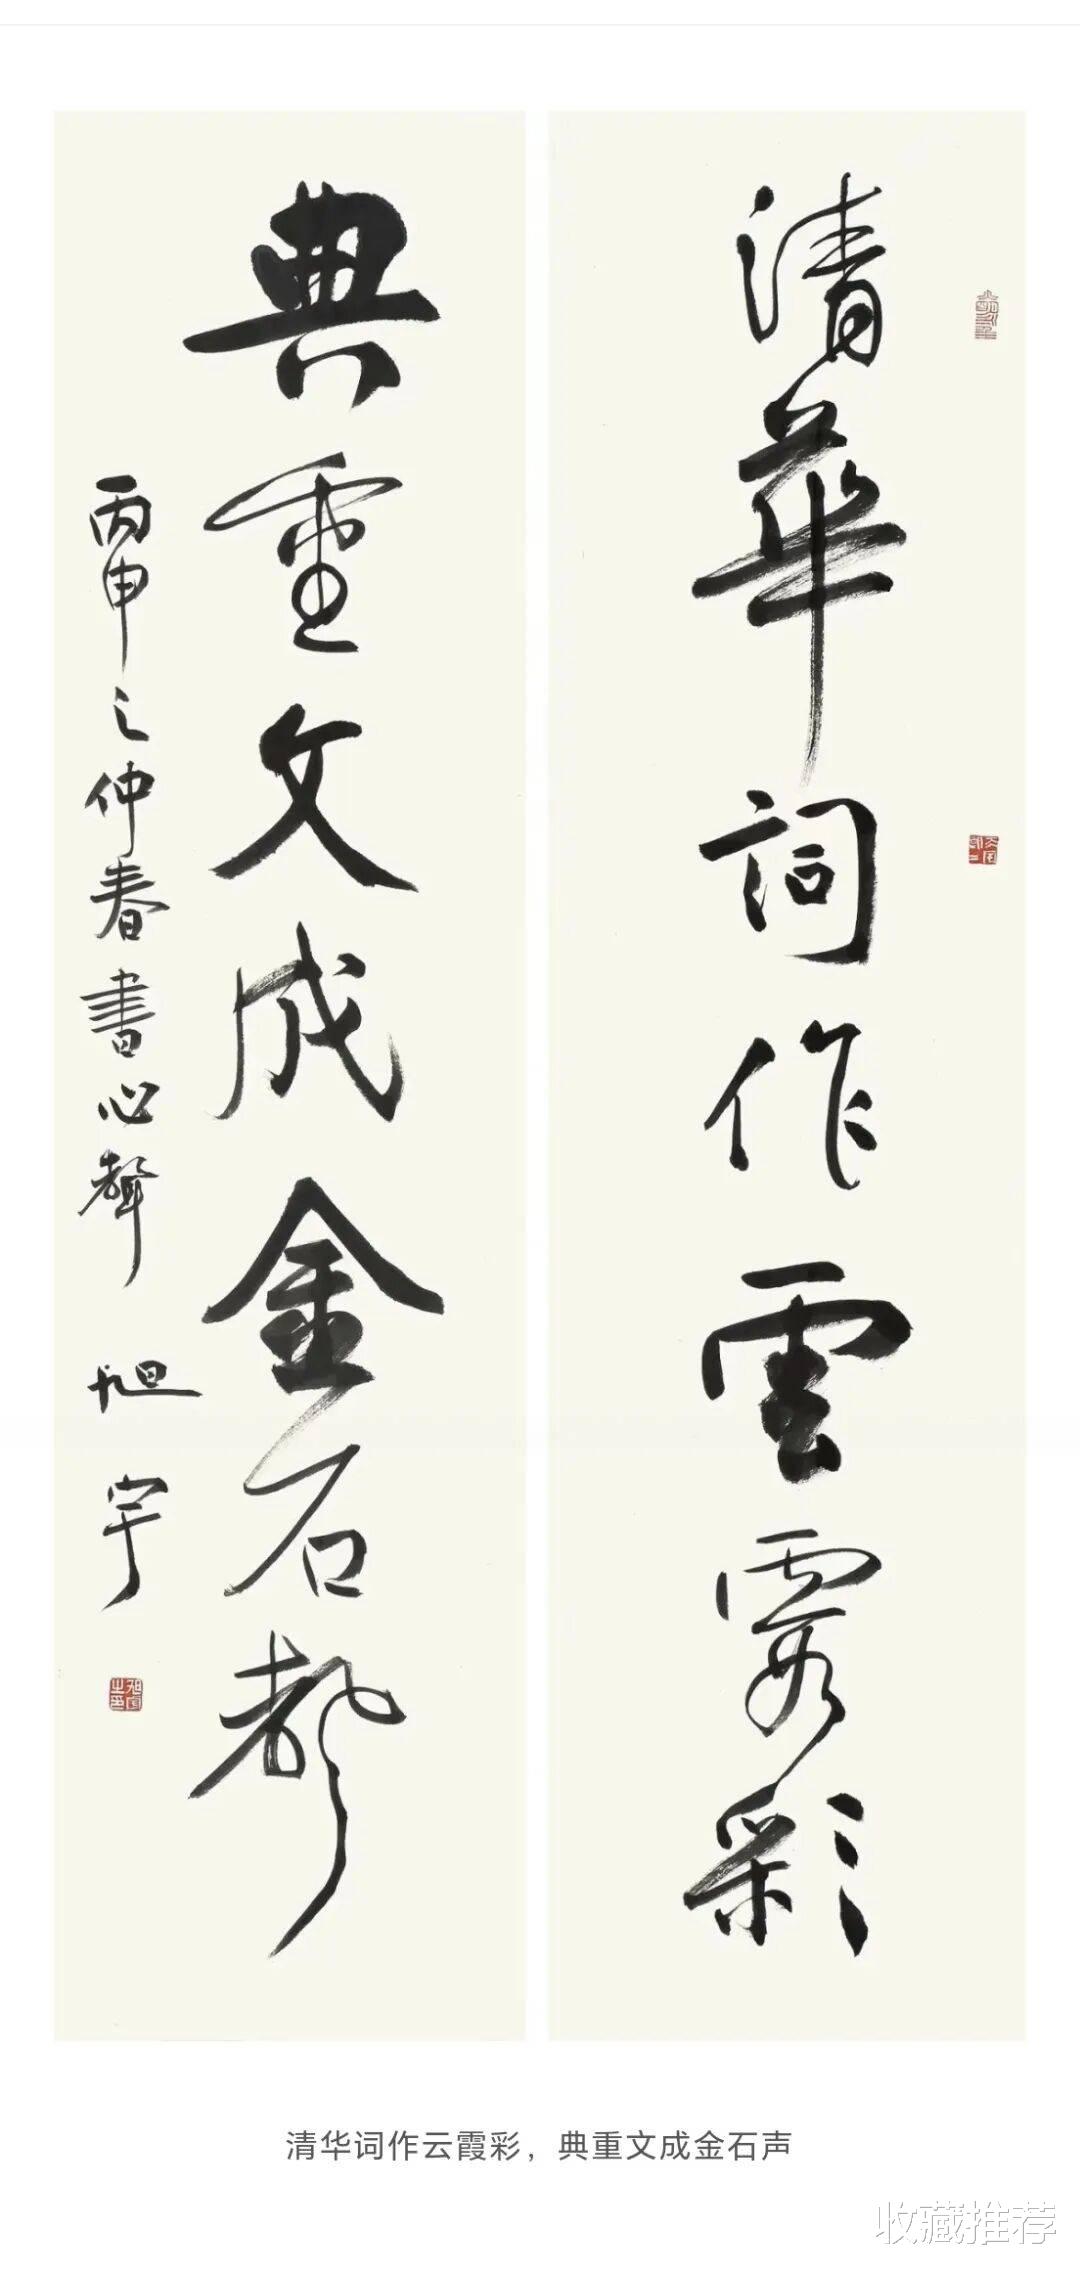 清華詞作雲霞彩
典重文成金石聲
丙申之仲春書心聲 旭宇
旭宇之印
清华词作云霞彩，典重文成金石声
收藏推荐